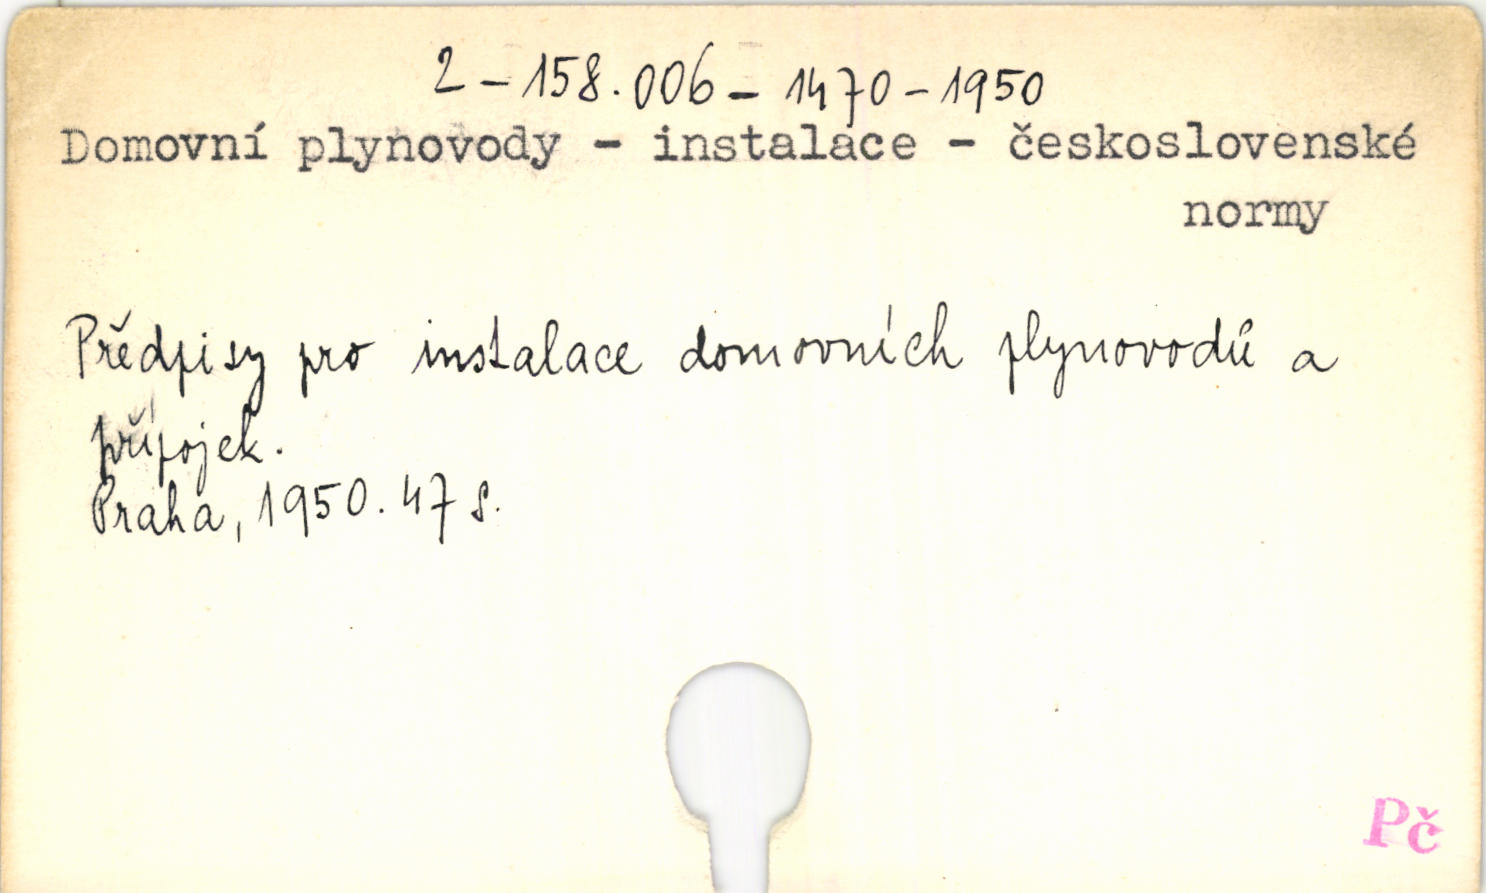 2-158.006-1470-1950
Domovní plynovody - instalace - československé
normy
Předpisy pro instalace domovních plynovodů a
přípojek.
Praha, 1950. 47 s.
Pč